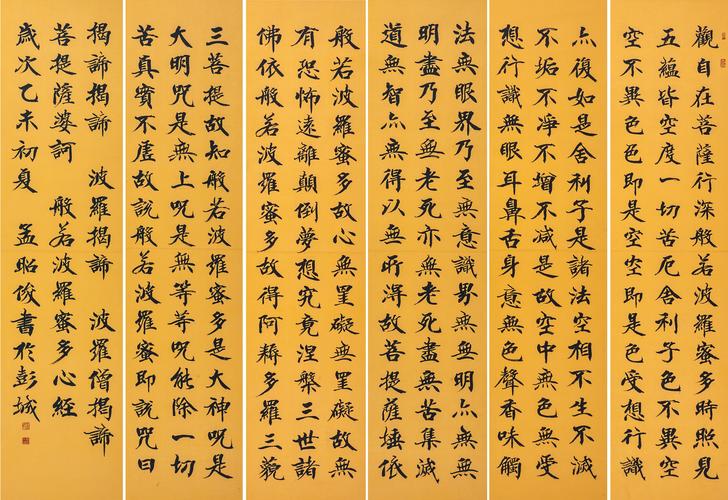 觀自在菩薩行深般若波羅蜜多時照見
五蘊皆空度一切苦厄舍利子色不異空
空不異色色即是空空即是色受想行識
亦復如是舍利子是諸法空相不生不滅
不垢不淨不增不減是故空中無色無受
想行識無眼耳鼻舌身意無色聲香味觸
法無眼界乃至無意識界無無明亦無無
明盡乃至無老死亦無老死盡無苦集滅
道無智亦無得以無所得故菩提薩埵依
般若波羅蜜多故心無罣礙無罣礙故無
有恐怖遠離顛倒夢想究竟涅槃三世諸
佛依般若波羅蜜多故得阿耨多羅三藐
三菩提故知般若波羅蜜多是大神咒是
大明咒是無上咒是無等等咒能除一切
苦真實不虛故說般若波羅蜜即說咒曰
揭諦揭諦 波羅揭諦 波羅僧揭諦
菩提薩婆訶 般若波羅蜜多心經
歲次乙未初夏 孟昭俊書於彭城